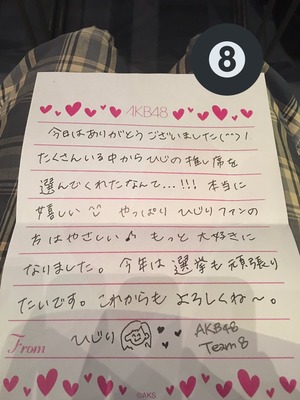 8
AKB48
今日はありがとうございました(^^)/
たくさんいる中からひじの推し席を
選んでくれたなんて…!!! 本当に
嬉しい やっぱり ひじりファンの
方はやさしい♪ もっと大好きに
なりました。今年は選挙も頑張り
たいです。これからもよろしくね〜。
From ひじり AKB48
Team8
©AKS